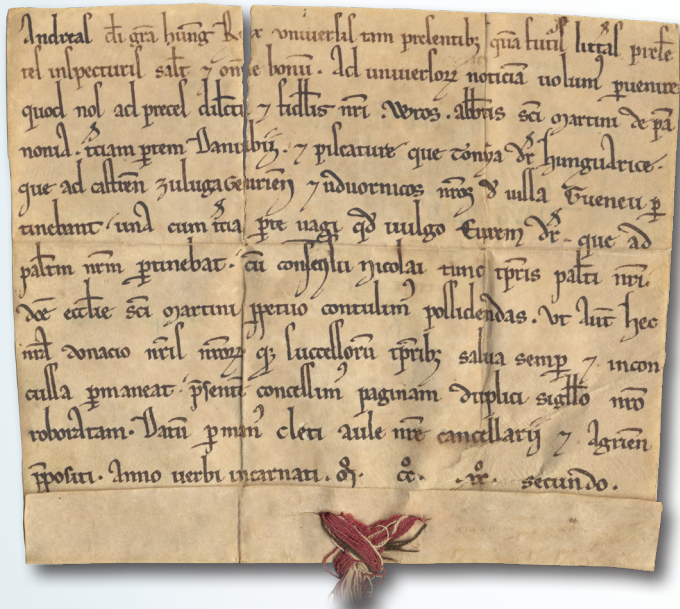 Andreas di gra hung Rex universis tam presentibz qua futis litas prese
tes inspecturis salt ⁊ omne bonu. Ad universorz noticia volum puenire
quod nos ad preces dilcti ⁊ fidlis nri .Vros. abbtis sci martini de pa
nonia. tciam ptem Danubii. ⁊ piscature que tonya dr hungarice.
que ad castren zulugageurien ⁊ udvornicos nros d villa Gueneu p
tinebant. una cum tcia pte vagi qd vulgo Eurem dr. que ad
palatm nrm ptinebat. cu consensu nicolai tunc tpris palti nri.
dce ecclie sci martini ppetuo contulim possidendas. Vt aut hec
nra donacio nris nrorz qz successoru tpribz salva semp ⁊ incon
cussa pmaneat psente concessim paginam duplici sigillo nro
roboratam. Datu p man cleti aule nre cancellarii ⁊ Agrien
ppositi. Anno verbi incarnati. m. cc. xx. secundo.